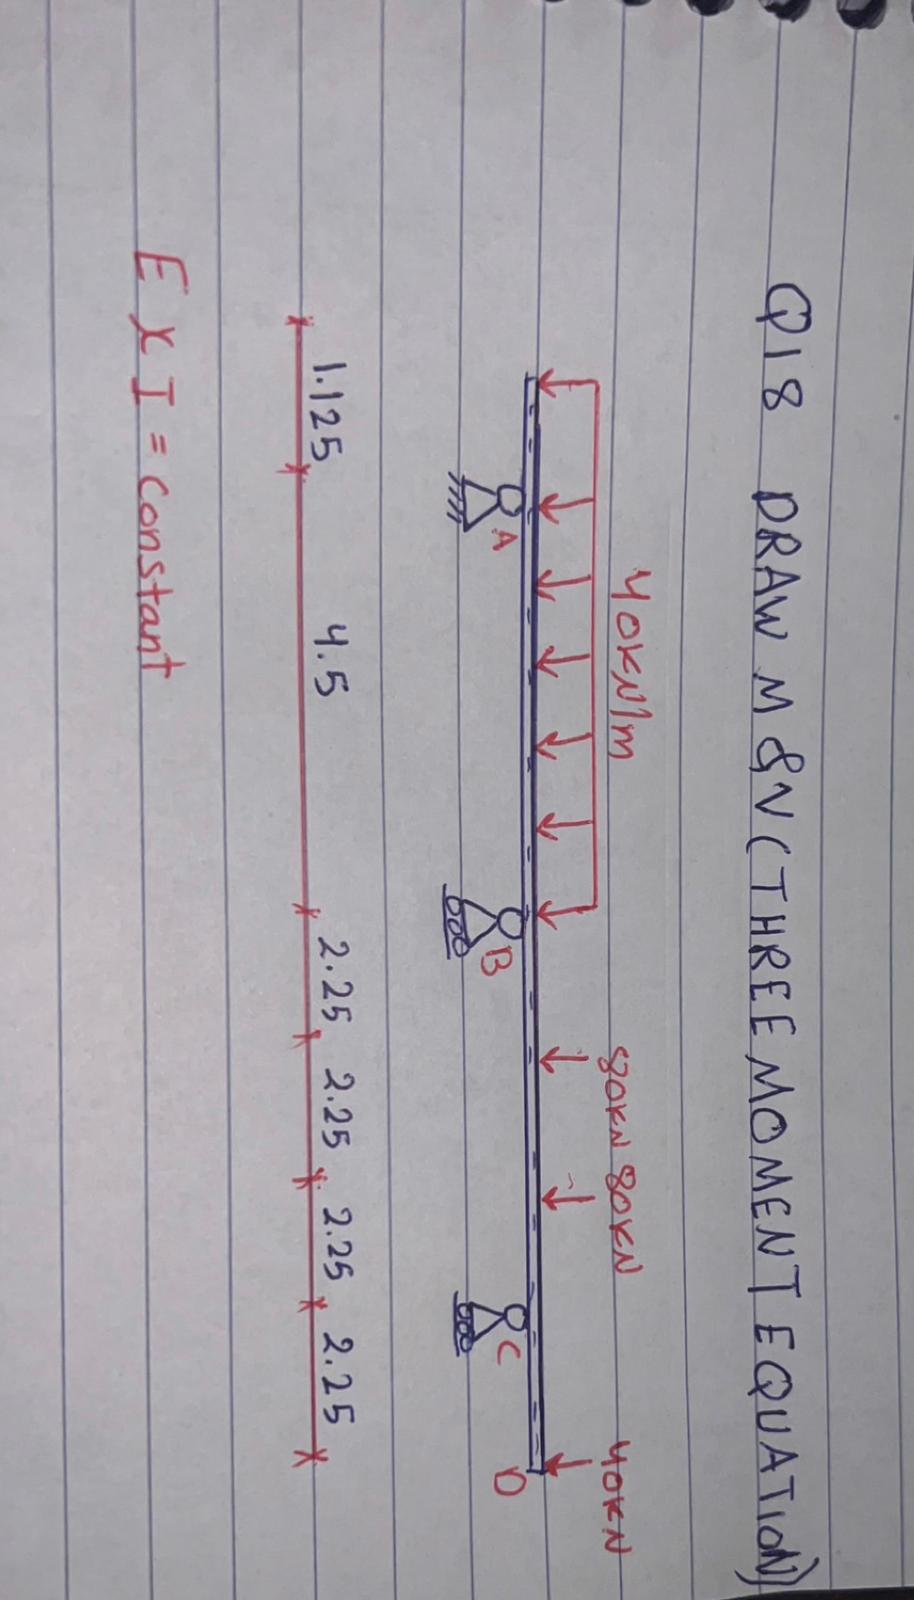 Q18 DRAW M & V (THREE MOMENT EQUATION)
40KN/m 80KN 80KN 40KN
A B C D
1.125 4.5 2.25 2.25 2.25 2.25
E x I = constant